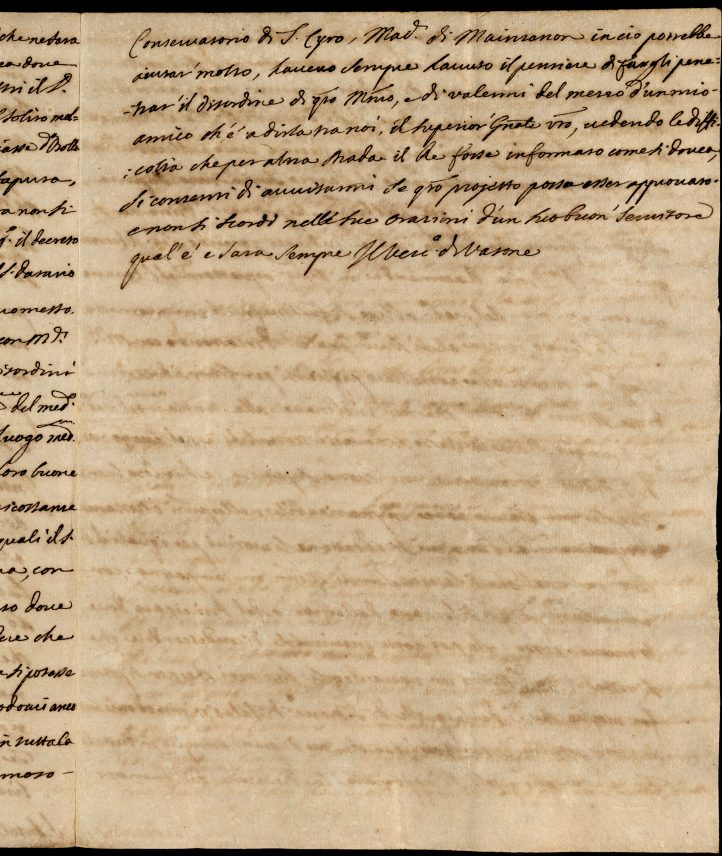 che ne sara
ca dove
il P.
solito mal=
sapura,
ra non si
il decreto
S. Davario
uomesto.
con M.d:
isordini
del med.
luogo med.
loro buone
ricostanse
quali il S.
na, con
so dove
che
si potesse
in tutta la
moro -
Conservatorio di S. Cyro, Mad. di Maintanon in cio potrebbe
aiutar' molto, havevo sempre havuto il pensiere di fargli pene=
=trar' il disordine di q̃ro Mrio, e di valermi del mezzo d'un mio
amico ch'é a dirla tra noi, il Superior Gñale v̄ro, vedendo le diffi=
:coltà che per altra strada il Re fosse informato come si doveva,
si contenti di avvisarmi se q̃ro projetto possa esser approvato
e non si scordi nelle sue orazioni d'un suo buon' Servitore
qual'é e sara sempre Il Vesc.º di Vasone